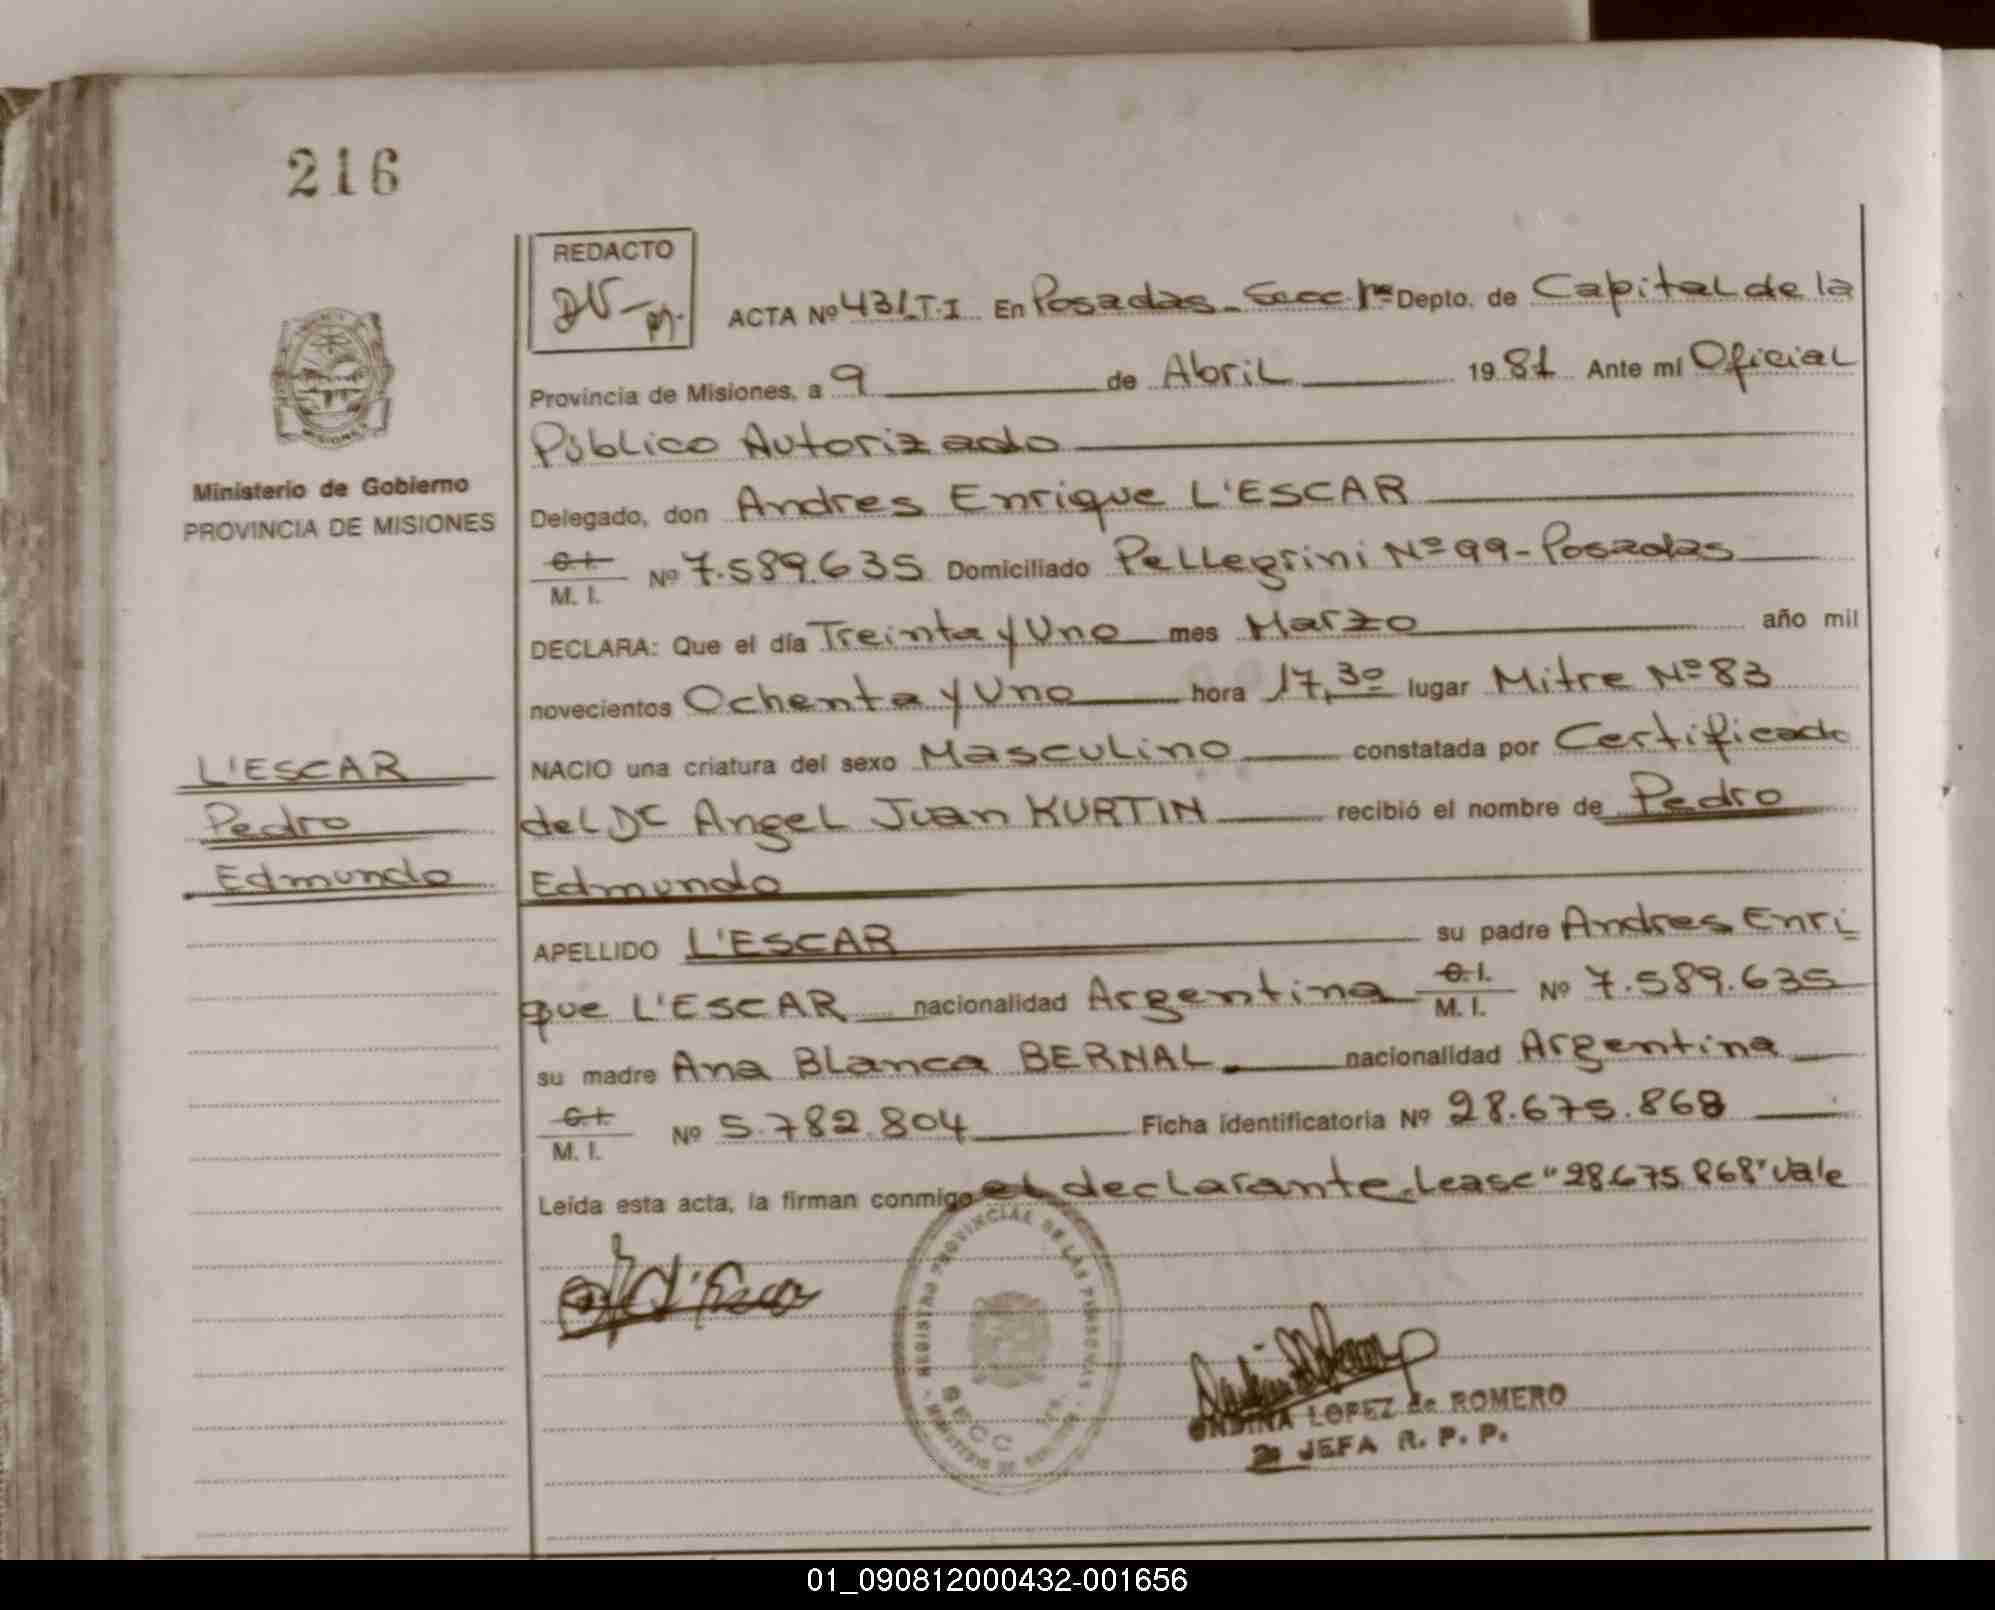 216
REDACTO
ACTA Nº 431.T.I En Posadas - Secc. 1ra Depto. de Capital de la
Provincia de Misiones, a 9 de Abril 1981 Ante mí Oficial
Público Autorizado
Delegado, don Andres Enrique L'ESCAR
MISIONES
Ministerio de Gobierno
PROVINCIA DE MISIONES
C.I.
M. I. Nº 7.589.635 Domiciliado Pellegrini Nº 99 - Posadas
DECLARA: Que el día Treinta y Uno mes Marzo año mil
novecientos Ochenta y Uno hora 17,30 lugar Mitre Nº 83
NACIO una criatura del sexo Masculino constatada por Certificado
del Dr Angel Juan KURTIN recibió el nombre de Pedro
Edmundo
L'ESCAR
Pedro
Edmundo
APELLIDO L'ESCAR su padre Andres Enri
que L'ESCAR nacionalidad Argentina C.I. M. I. Nº 7.589.635
su madre Ana Blanca BERNAL nacionalidad Argentina
C.I.
M. I. Nº 5.782.804 Ficha identificatoria Nº 28.675.868
Leída esta acta, la firman conmigo el declarante. Lease "28.675.868" Vale
REGISTRO PROVINCIAL DE LAS PERSONAS
SECC
ONDINA LOPEZ de ROMERO
2a JEFA R. P. P.
01_090812000432-001656